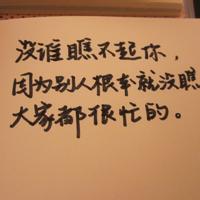 没谁瞧不起你，
因为别人根本就没瞧
大家都很忙的。